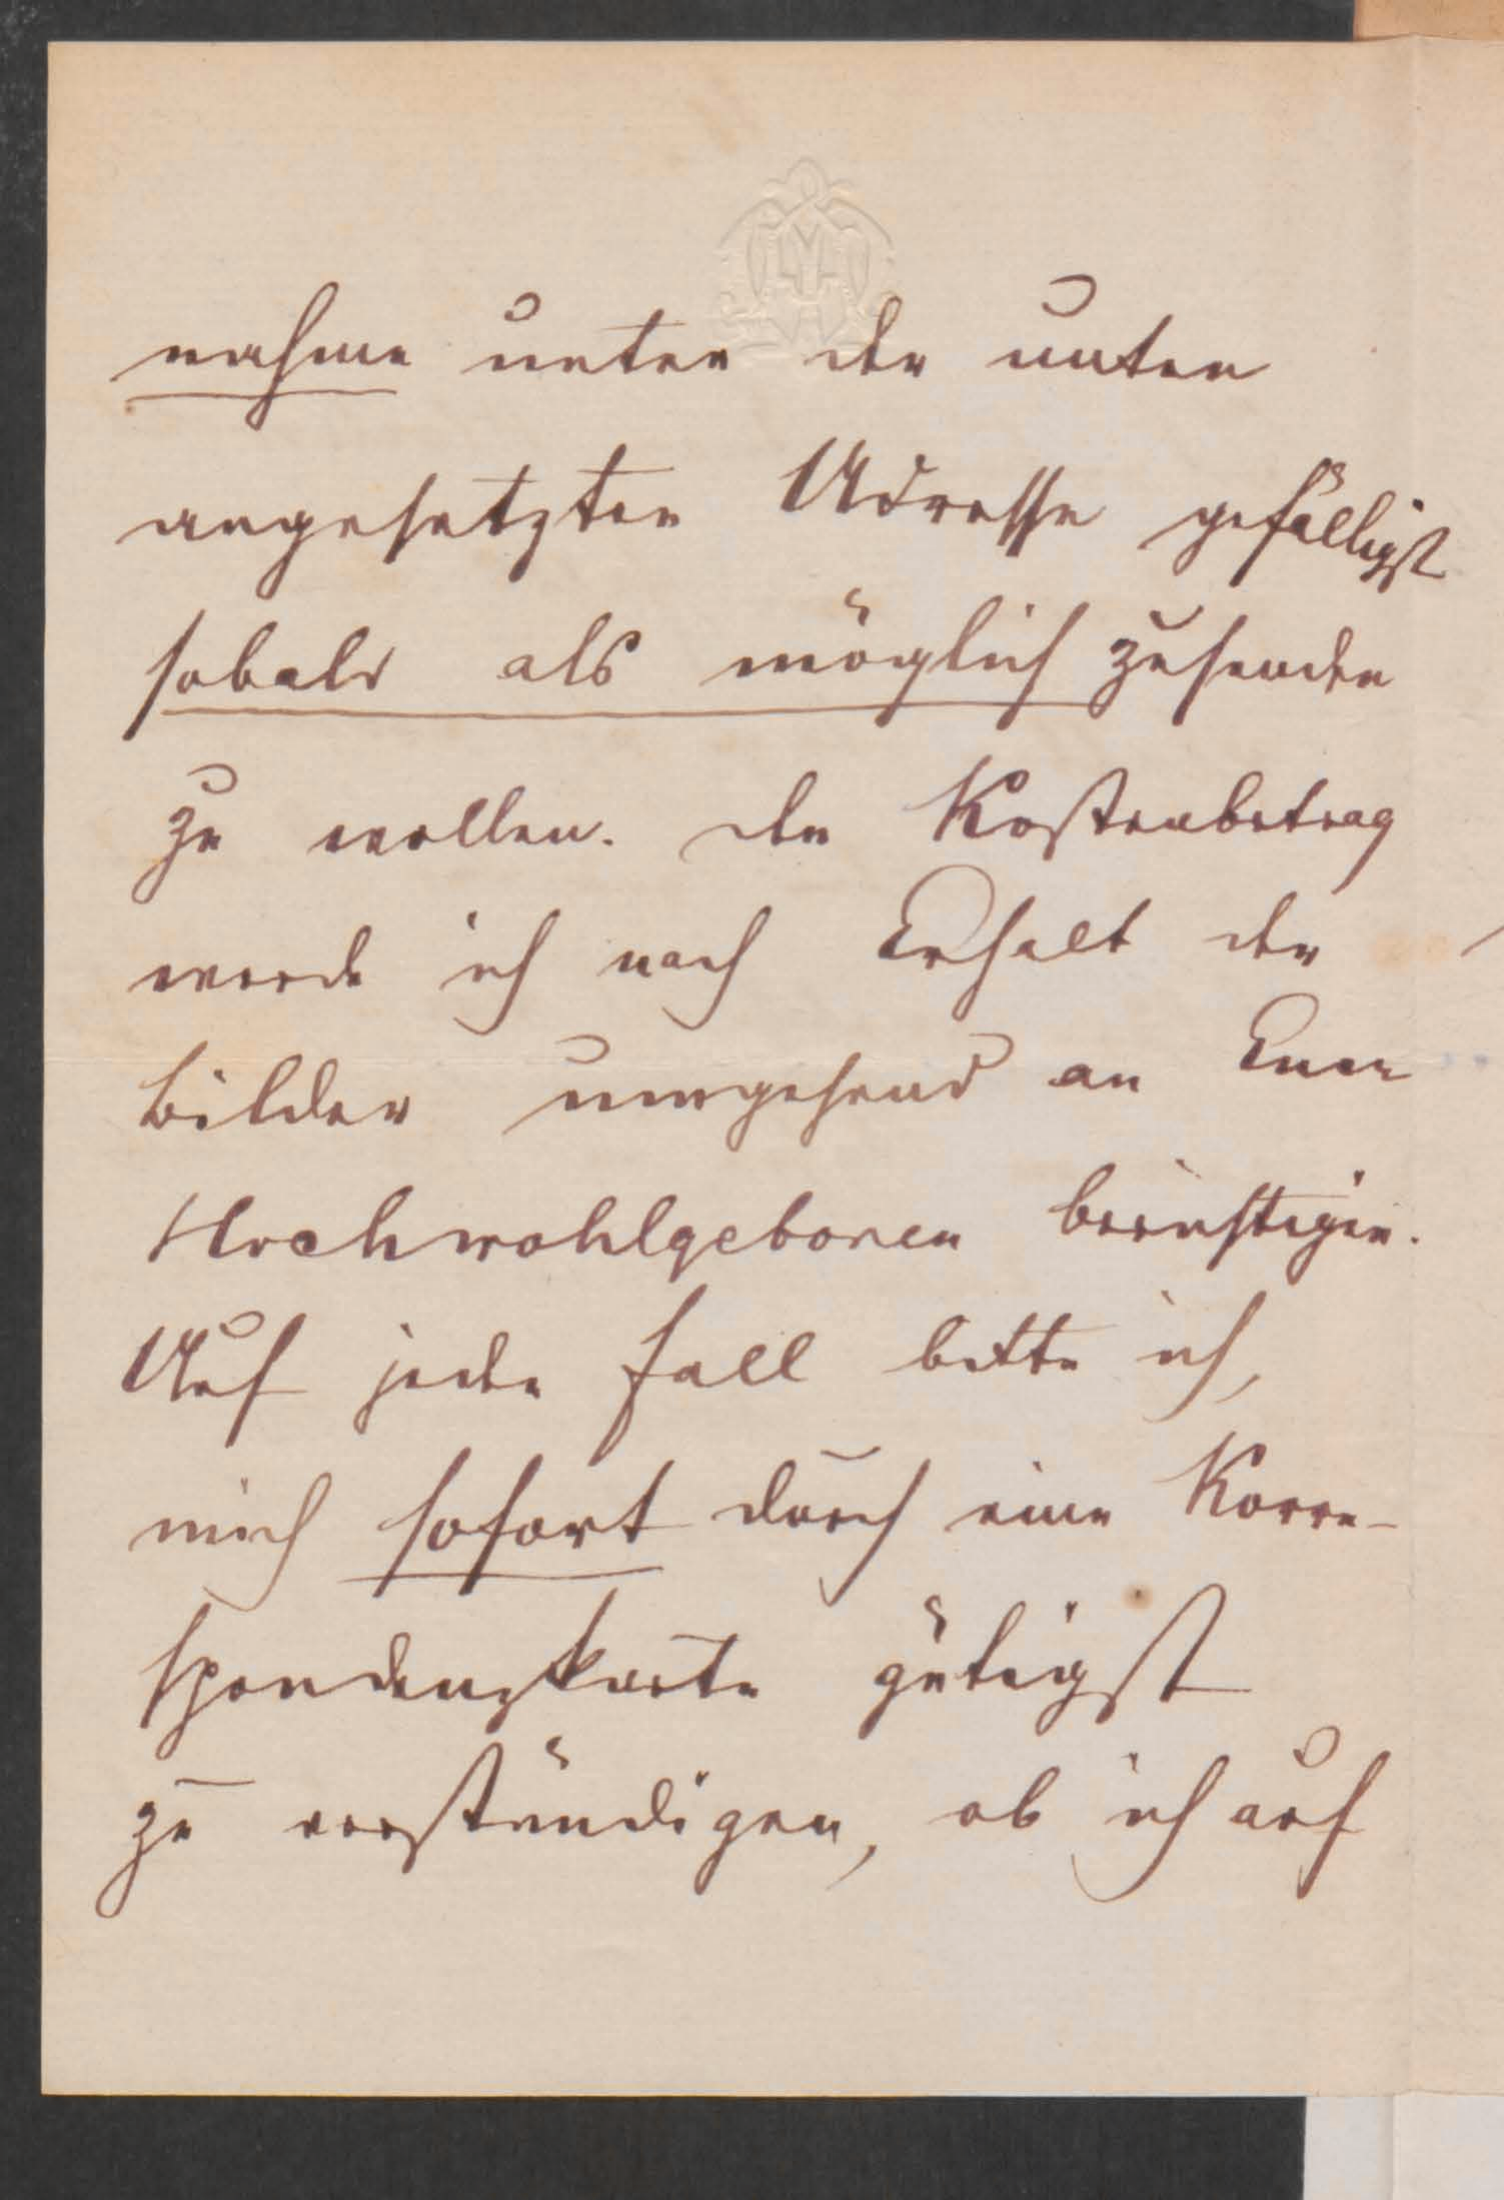 nahme unter der unten
angesetzten Adresse gefälligst
sobald als möglich zusenden
zu wollen. Den Kostenbetrag
werde ich nach Erhalt der
Bilder umgehend an Euer
Hochwohlgeboren berichtigen.
Auf jeden Fall bitte ich,
mich sofort durch eine Korre-
spondenzkarte gütigst
zu verständigen, ob ich auf